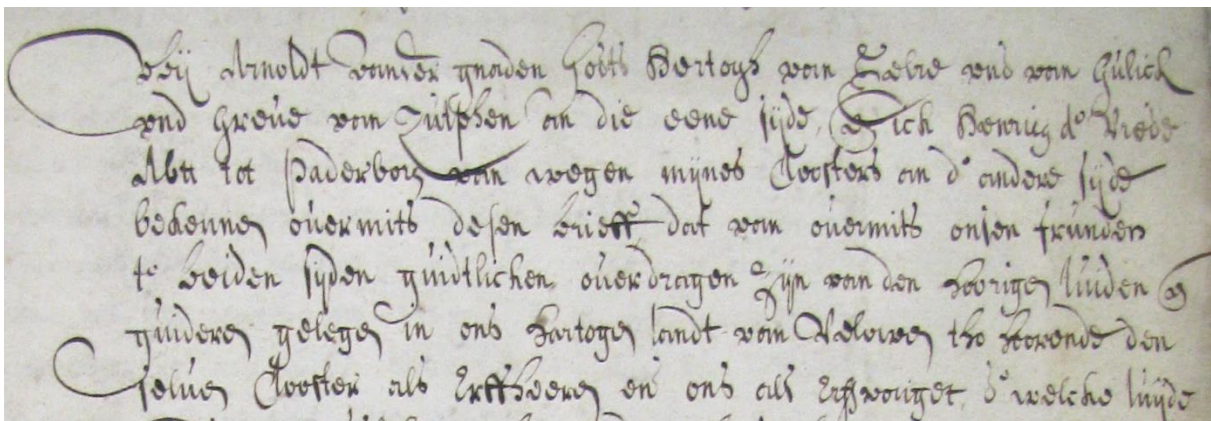 Wij Arnoldt vander gnaden Godts Hertogh van Gelre und van Gulich
und Greve van Zutphen an die eene sijde, en ick Henrick de Vrede
Abt tot Paderborn van wegen mijnes Cloosters an de andere sijde
bekennen overmits desen brieff dat van overmits onsen frunden
te beiden sijden guidtlichen overdragen zijn van den hoorigen luiden en
guideren gelegen in ons Hartogen landt van Velowen tho horende den
selven Clooster als Erffheeren en ons als Erffvaiget, de welcke luijde